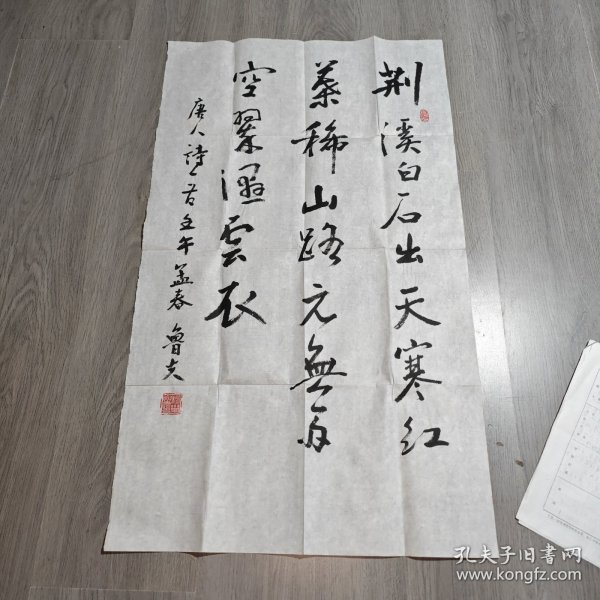 荆溪白石出天寒红
葉稀山路元無雨
空翠濕雲衣
唐人詩一首壬午孟春 魯夫
孔夫子旧书网
www.kongfz.com